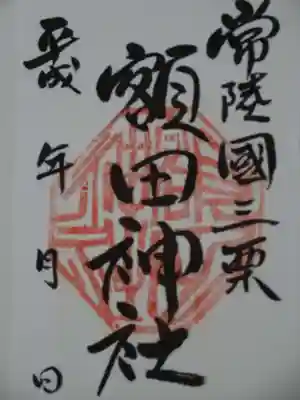 常陸國三栗
額田神社
平成 年 月 日